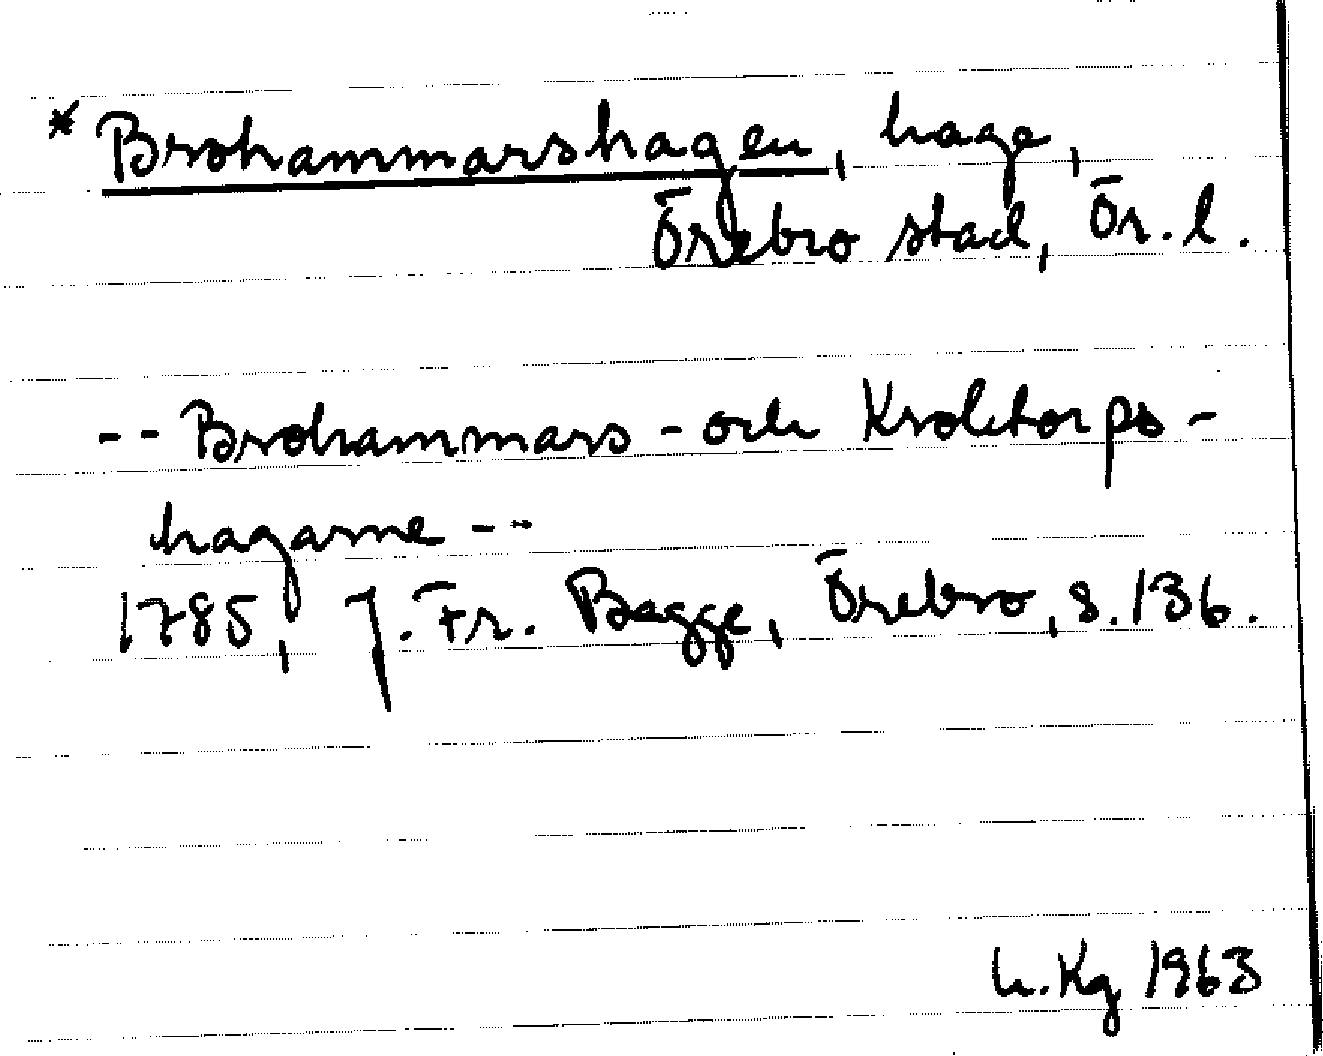 * Brohammarshagen, hage,
Örebro stad, Ör. l.
-- Brohammars- och Kroktorps-
hagarne --
1785, J. Fr. Bagge, Örebro, s. 136.
h. Kg 1963